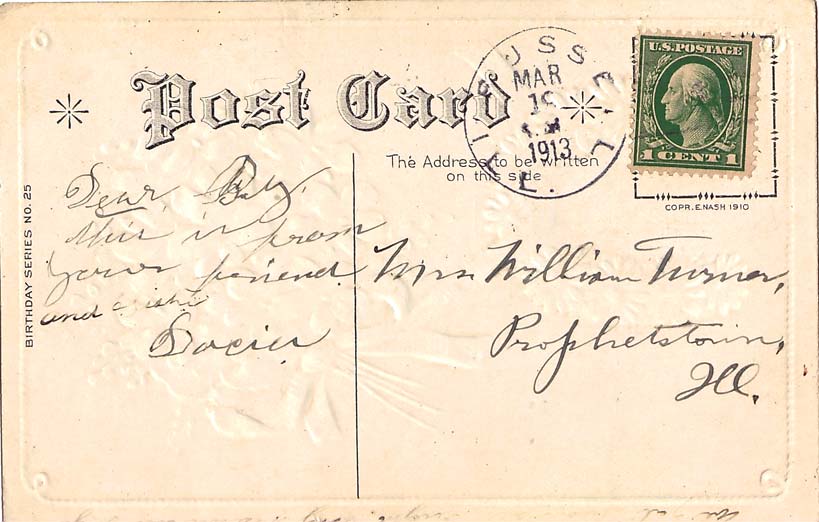 Post Card
RUSSELL
MAR
1913
ILL.
U.S. POSTAGE
1 CENT 1
The Address to be written
on this side
COPR. E. NASH 1910
BIRTHDAY SERIES NO. 25
Dear
this is from
your friend
and
Mrs William Turner,
Prophetstown,
Ill.